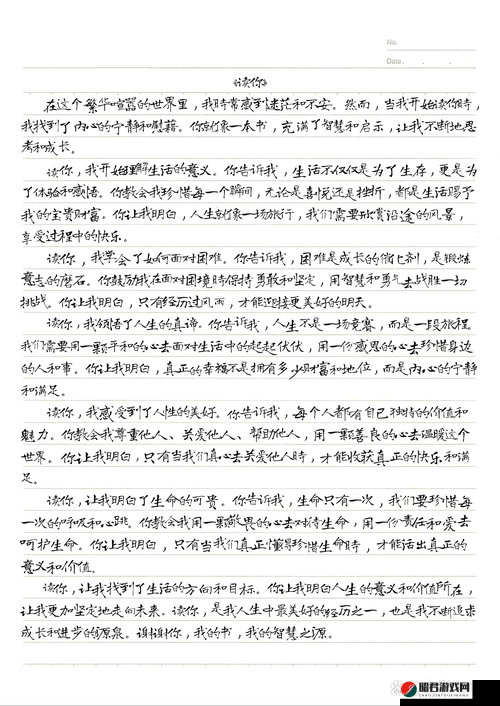 No.
Date.
《读你》
在这个繁华喧嚣的世界里，我时常感到迷茫和不安。然而，当我开始读你时，
我找到了内心的宁静和慰藉。你就像一本书，充满了智慧和启示，让我不断地思
考和成长。
读你，我开始理解生活的意义。你告诉我，生活不仅仅是为了生存，更是为
了体验和感悟。你教会我珍惜每一个瞬间，无论是喜悦还是挫折，都是生活赐予
我的宝贵财富。你让我明白，人生就像一场旅行，我们需要欣赏沿途的风景，
享受过程中的快乐。
读你，我学会了如何面对困难。你告诉我，困难是成长的催化剂，是锻炼
意志的磨石。你鼓励我在面对困境时保持勇敢和坚定，用智慧和勇气去战胜一切
挑战。你让我明白，只有经历过风雨，才能迎接更美好的明天。
读你，我领悟了人生的真谛。你告诉我，人生不是一场竞赛，而是一段旅程。
我们需要用一颗平和的心去面对生活中的起起伏伏，用一份感恩的心去珍惜身边
的人和事。你让我明白，真正的幸福不是拥有多少财富和地位，而是内心的宁静
和满足。
读你，我感受到了人性的美好。你告诉我，每个人都有自己独特的价值和
魅力。你教会我尊重他人、关爱他人、帮助他人，用一颗善良的心去温暖这个
世界。你让我明白，只有当我们真心去关爱他人时，才能收获真正的快乐和满
足。
读你，让我明白了生命的可贵。你告诉我，生命只有一次，我们要珍惜每
一次的呼吸和心跳。你教会我用一颗敬畏的心去对待生命，用一份责任和爱去
呵护生命。你让我明白，只有当我们真正懂得珍惜生命时，才能活出真正的
意义和价值。
读你，让我找到了生活的方向和目标。你让我明白人生的意义和价值所在，
让我更加坚定地走向未来。读你，是我人生中最美好的经历之一，也是我不断追求
成长和进步的源泉。谢谢你，我的书，我的智慧之源。
昭君游戏网
ZHAOJUNYOUXIWANG